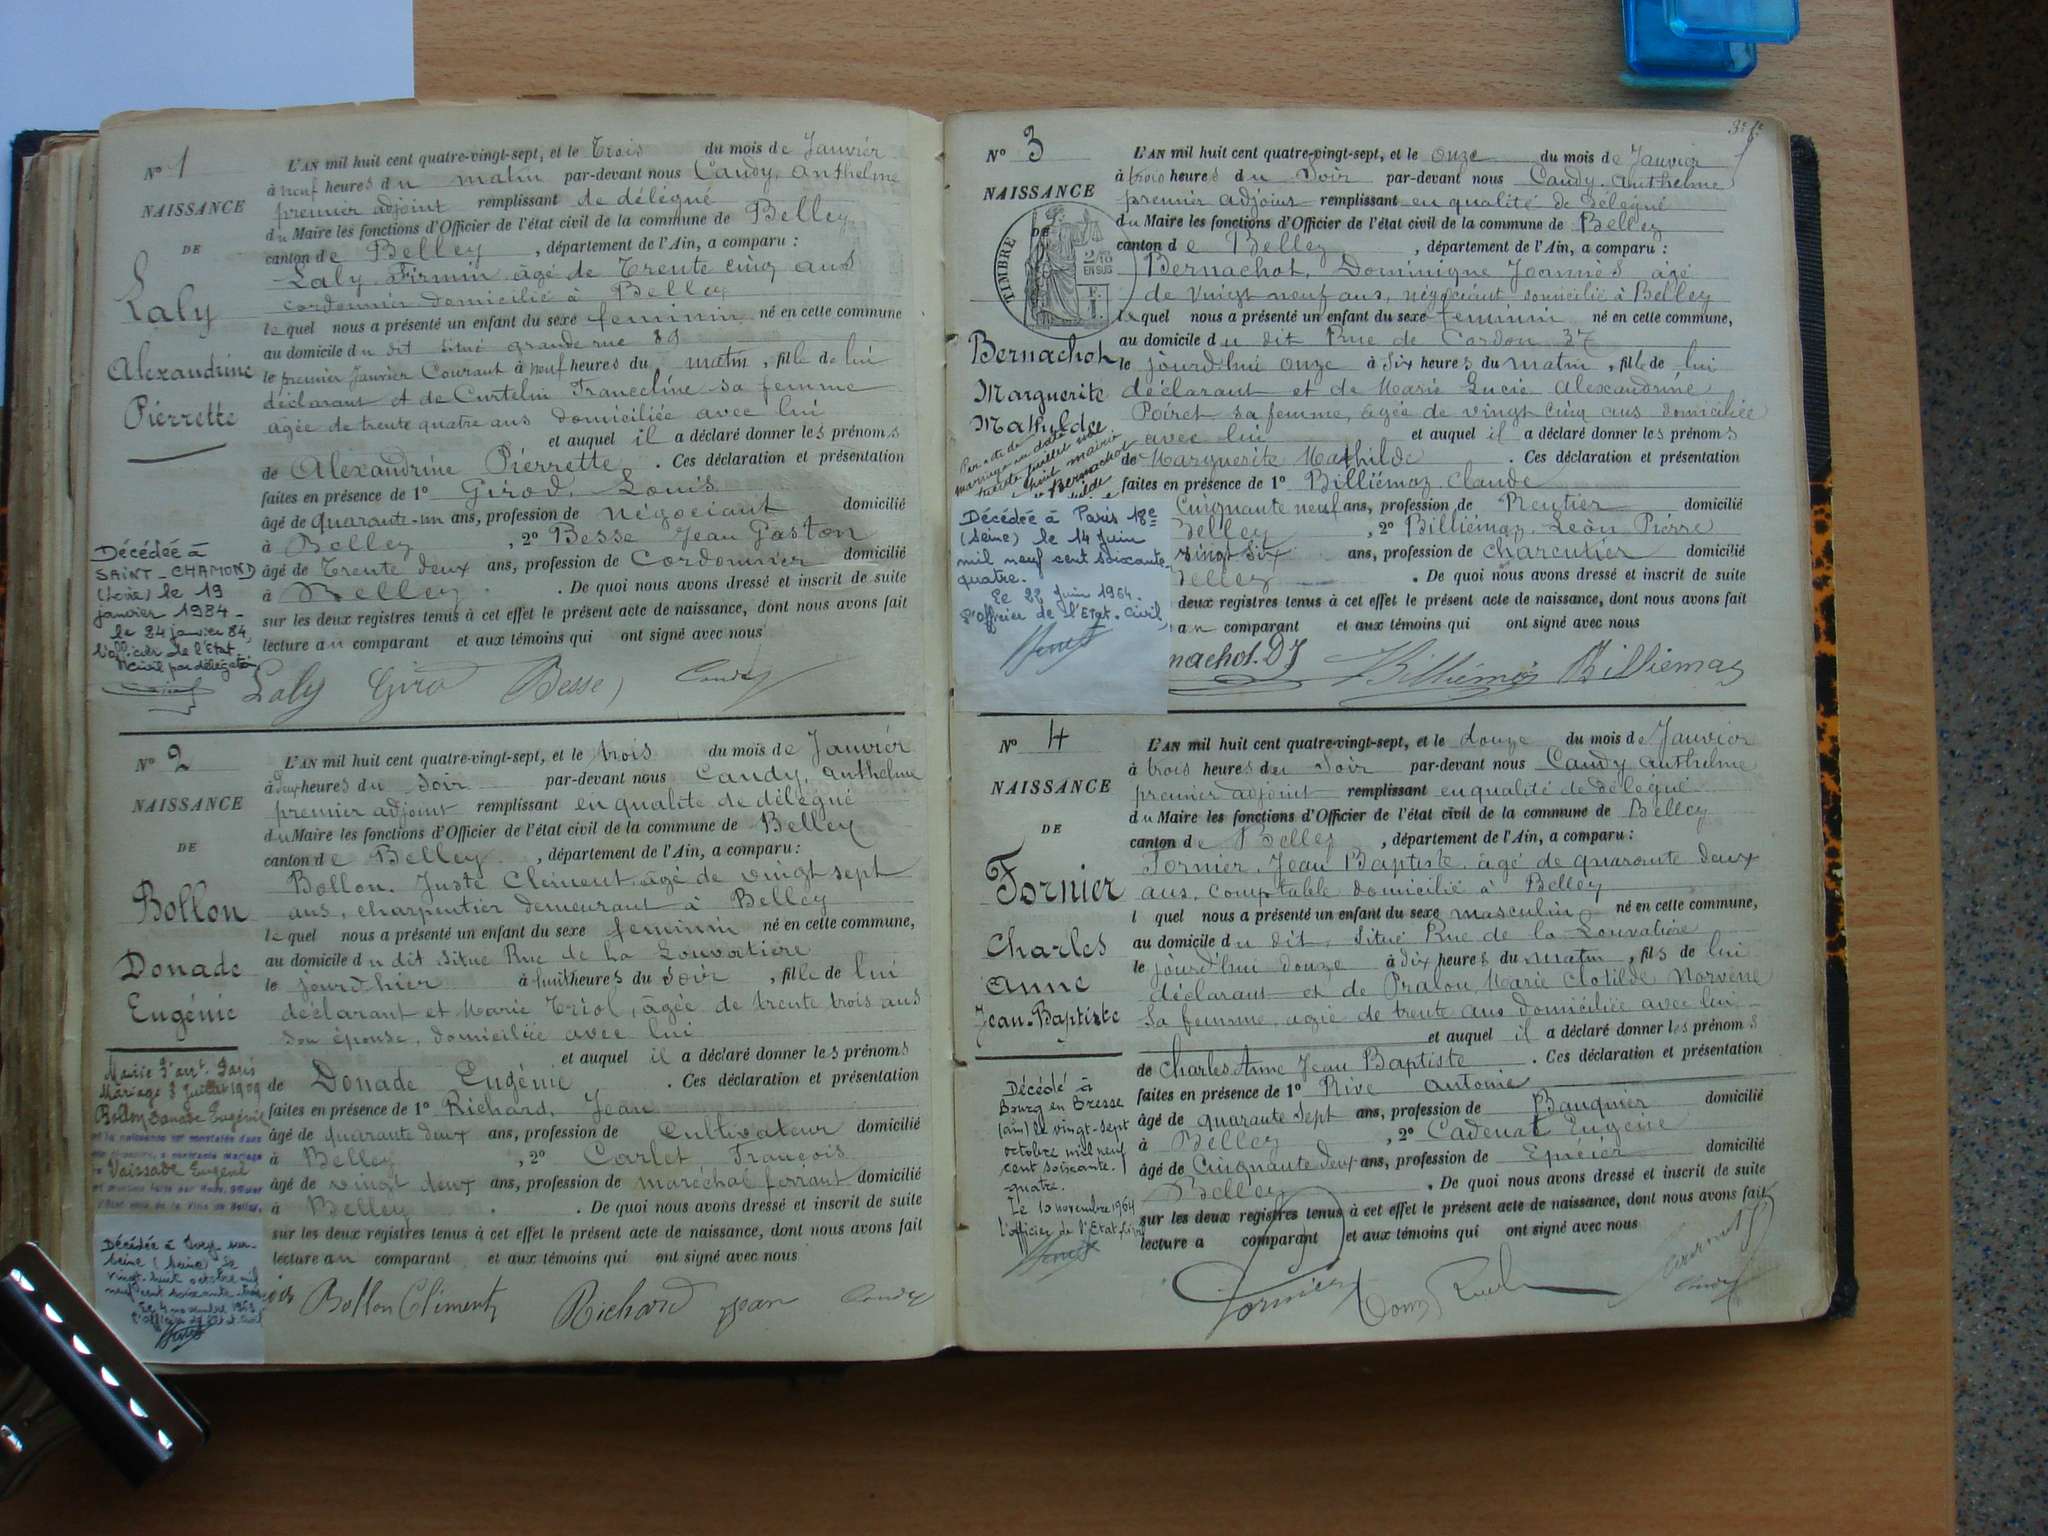 N° 1
NAISSANCE
DE
Laly
Alexandrine
Pierrette
L'AN mil huit cent quatre-vingt-sept, et le Trois du mois de Janvier
à neuf heures du matin par-devant nous Candy, Anthelme
premier adjoint remplissant de délégué
du Maire les fonctions d'Officier de l'état civil de la commune de Belley
canton de Belley, département de l'Ain, a comparu :
Laly Firmin âgé de Trente cinq ans
cordonnier domicilié à Belley
lequel nous a présenté un enfant du sexe feminin né en cette commune
au domicile du dit situé grande rue
le premier Janvier Courant à neuf heures du matin, fille de lui
déclarant et de Curtelin Franceline sa femme
agée de trente quatre ans domiciliée avec lui
et auquel il a déclaré donner les prénoms
de Alexandrine Pierrette. Ces déclaration et présentation
faites en présence de 1° Girod, Louis
âgé de quarante-un ans, profession de négociant domicilié
à Belley, 2° Besse Jean Gaston
âgé de Trente deux ans, profession de Cordonnier domicilié
à Belley. De quoi nous avons dressé et inscrit de suite
sur les deux registres tenus à cet effet le présent acte de naissance, dont nous avons fait
lecture au comparant et aux témoins qui ont signé avec nous
Laly Girod Besse Candy
Décédée à
SAINT-CHAMOND
(Loire) le 19
janvier 1984 -
le 24 janvier 84,
l'officier de l'Etat
Civil par délégation
N° 2
NAISSANCE
DE
Bollon
Donade
Eugénie
L'AN mil huit cent quatre-vingt-sept, et le trois du mois de Janvier
à deux heures du soir par-devant nous Candy, Anthelme
premier adjoint remplissant en qualité de délégué
du Maire les fonctions d'Officier de l'état civil de la commune de Belley
canton de Belley, département de l'Ain, a comparu :
Bollon. Juste Clément, âgé de vingt sept
ans, charpentier demeurant à Belley
lequel nous a présenté un enfant du sexe feminin né en cette commune,
au domicile du dit situé Rue de la Louvatière
le jourd'hier à huit heures du soir, fille de lui
déclarant et Marie Triol, âgée de trente trois ans
son épouse, domiciliée avec lui
et auquel il a déclaré donner les prénoms
de Donade Eugénie. Ces déclaration et présentation
faites en présence de 1° Richard, Jean
âgé de quarante deux ans, profession de Cultivateur domicilié
à Belley, 2° Carlet François
âgé de vingt deux ans, profession de maréchal ferrant domicilié
à Belley. De quoi nous avons dressé et inscrit de suite
sur les deux registres tenus à cet effet le présent acte de naissance, dont nous avons fait
lecture au comparant et aux témoins qui ont signé avec nous
Bollon Climent Richard Jean Candy
Mairie Paris
Mariage 3 Juillet 1909
Bollon Donade Eugénie
Vaissade Eugène
Décédée à Ivry sur
Seine (Seine) le
vingt-huit octobre mil
neuf cent soixante-trois
Le 4 novembre 1963
l'officier de l'Etat Civil
N° 3
NAISSANCE
DE
TIMBRE
2/10
EN SUS
Bernachot
Marguerite
Mathilde
L'AN mil huit cent quatre-vingt-sept, et le onze du mois de Janvier
à trois heures du Soir par-devant nous Candy. Anthelme
premier adjoint remplissant en qualité de délégué
du Maire les fonctions d'Officier de l'état civil de la commune de Belley
canton de Belley, département de l'Ain, a comparu :
Bernachot, Dominique Joannès âgé
de vingt neuf ans, négociant domicilié à Belley
lequel nous a présenté un enfant du sexe feminin né en cette commune,
au domicile du dit Rue de Cordon 37
le jourd'hui onze à six heures du matin, fille de lui
déclarant et de Marie Lucie Alexandrine
Poiret sa femme, agée de vingt cinq ans domiciliée
avec lui et auquel il a déclaré donner les prénoms
de Marguerite Mathilde. Ces déclaration et présentation
faites en présence de 1° Billiémaz Claude
Cinquante neuf ans, profession de Rentier domicilié
Belley, 2° Billiémaz, Léon Pierre
vingt six ans, profession de charcutier domicilié
Belley. De quoi nous avons dressé et inscrit de suite
deux registres tenus à cet effet le présent acte de naissance, dont nous avons fait
au comparant et aux témoins qui ont signé avec nous
nachot. DJ Billiémaz Billiemaz
Décédée à Paris 18e
(Seine) le 14 Juin
mil neuf cent soixante-
quatre.
Le 22 Juin 1964.
L'officier de l'Etat-Civil,
N° 4
NAISSANCE
DE
Fornier
Charles
Anne
Jean-Baptiste
L'AN mil huit cent quatre-vingt-sept, et le douze du mois de Janvier
à trois heures du soir par-devant nous Candy Anthelme
premier adjoint remplissant en qualité de délégué
du Maire les fonctions d'Officier de l'état civil de la commune de Belley
canton de Belley, département de l'Ain, a comparu :
Fornier, Jean Baptiste, âgé de quarante deux
ans, comptable domicilié à Belley
l quel nous a présenté un enfant du sexe masculin né en cette commune,
au domicile du dit, situé Rue de la Louvatière
le jourd'hui douze à dix heures du matin, fils de lui
déclarant et de Pralon, Marie Clotilde
sa femme, agée de trente ans domiciliée avec lui
et auquel il a déclaré donner les prénoms
de Charles Anne Jean Baptiste. Ces déclaration et présentation
faites en présence de 1° Rive Antoine
âgé de quarante sept ans, profession de Banquier domicilié
à Belley, 2° Cadenat Eugène
âgé de Cinquante deux ans, profession de Epicier domicilié
Belley. De quoi nous avons dressé et inscrit de suite
sur les deux registres tenus à cet effet le présent acte de naissance, dont nous avons fait
lecture a comparant et aux témoins qui ont signé avec nous
Fornier Candy
Décédé à
Bourg en Bresse
(Ain) le vingt-sept
octobre mil neuf
cent soixante-
quatre.
Le 10 novembre 1964
l'officier de l'Etat Civil